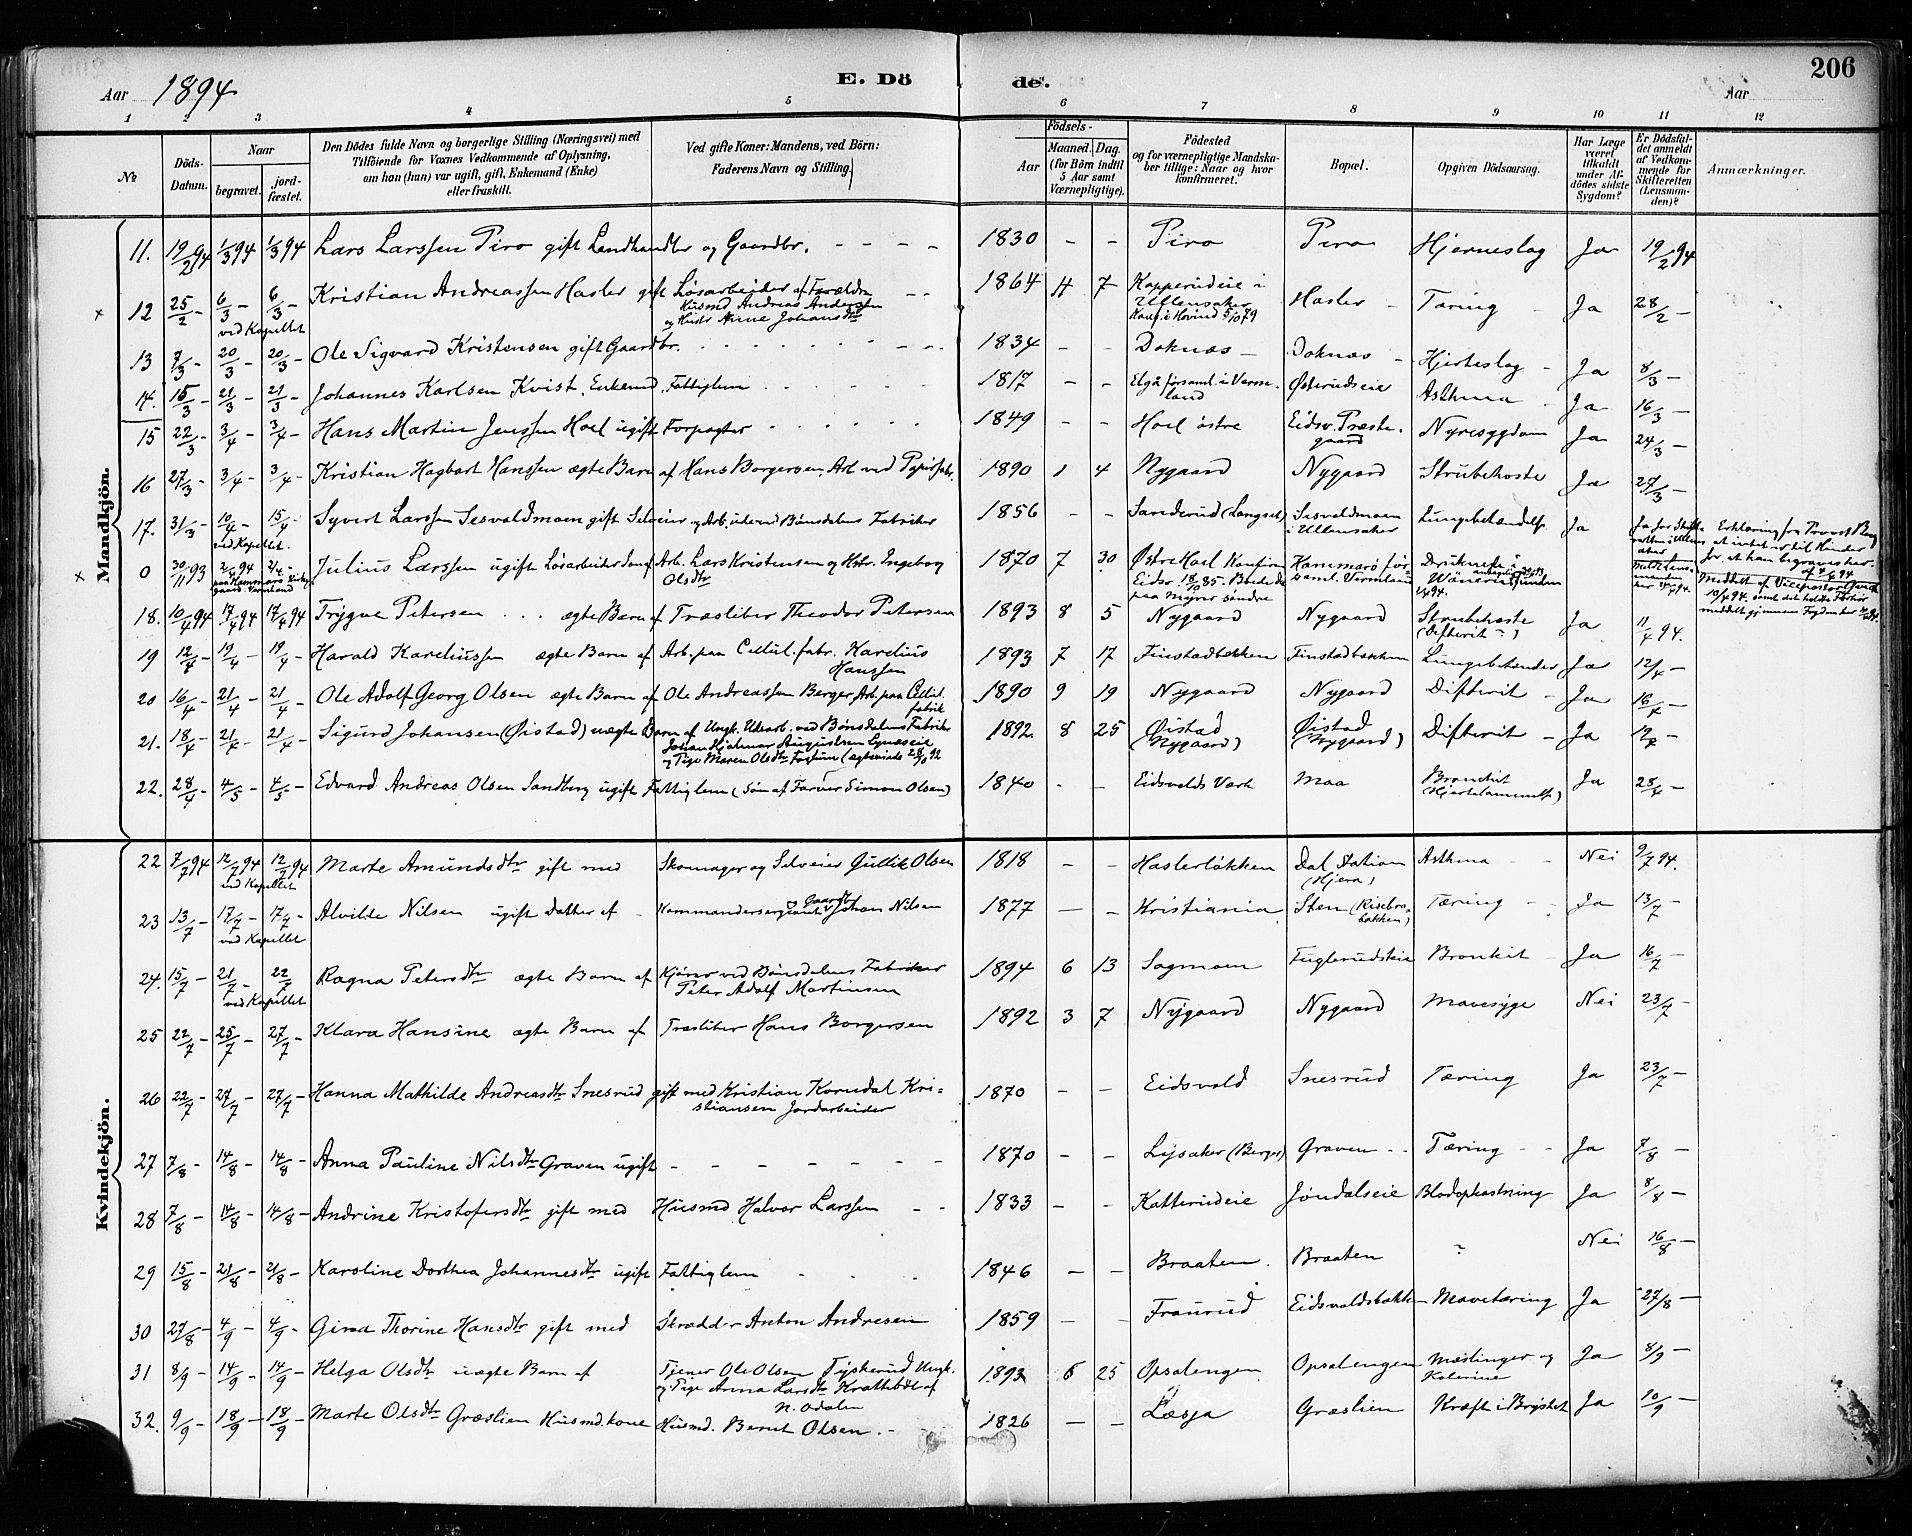 206
Aar 1894 E. Dö de. Aar
1 2 3 4 5 6 7 8 9 10 11 12
No Döds-Datum. Naar begravet. jordfæstet. Den Dödes fulde Navn og borgerlige Stilling (Næringsvei) med Tilföiende for Voxnes Vedkommende af Oplysning, om han (hun) var ugift, gift, Enkemand (Enke) eller fraskilt. Ved gifte Koner: Mandens, ved Börn: Faderens Navn og Stilling. Födsels- Aar Maaned. Dag. (for Börn indtil 5 Aar samt Værnepligtige). Födested og for værnepligtige Mandskaber tillige: Naar og hvor konfirmeret. Bopæl. Opgiven Dödsaarsag. Har Læge været tilkaldt under Afdödes sidste Sygdom? Er Dödsfaldet anmeldt af Vedkommende for Skifteretten (Lensmanden)? Anmærkninger.
Mandkjön.
11. 19/2 94 1/3 94 1/3 94 Lars Larssen Piro gift Landhandler og Gaardbr. - - - - 1830 - - Piro Piro Hjerneslag Ja 19/2 94
× 12 25/2 - 6/3 - 6/3 - Kristian Andreassen Hasler gift Løsarbeider af Forældre - - 1864 4 7 Kopperudeie i Hasler - Tæring - Ja 28/2 -
ved Kapellet Husmd Andreas Anderssen Ullensaker
og Hustr Anne Johansdtr Konf. i Hovind 5/10 79
13 7/3 - 20/3 - 20/3 - Ole Sigvard Kristensen gift Gaardbr. 1834 - - Doknæs - Doknæs - Hjerteslag - Ja 8/3 -
14. 15/3 - 21/3 - 21/3 - Johannes Karlsen Kvist, Enkemd, Fattiglem 1817 - - Elgå forsaml. i Vermland Østerudseie Asthma - Ja 16/3 -
15 22/3 - 3/4 - 3/4 - Hans Martin Jenssen Hoel ugift Forpagter 1849 - - Hoel östre Eidsv. Præstegaard Nyresygdom Ja 24/3 -
16 27/3 - 3/4 - 3/4 - Kristian Hagbart Hanssen ægte Barn af Hans Borgersen, Arb. ved Papirfabr. 1890 1 4 Nygaard Nygaard Strubehoste Ja 27/3 -
17. 31/3 - 10/4 - 15/4 - Syvert Larssen Sesvoldmoen gift Selveier og Arb. ude ved Bönsdalens Fabriker 1856 - - Sanderud (Langset) Sesvoldmoen i Ullensaker Lungebetændelse Ja
ved Kapellet.
× 0 30/11 93 2/4 94 2/4 - Julius Larssen ugift Løsarbeider Søn af Arb. Lars Kristensen og Hstr. Ingeborg Olsdtr 1870 7 30 Østre Hoel Konfirm. Eidsv. 18/10 85. Hammarö forsaml. Vermland Druknede
18. 10/4 94 17/4 94 17/4 94 Trygve Petersen . . . ægte Barn af Træsliber Theodor Petersen 1893 8 5 Nygaard Nygaard Strubehoste (Difterit?) Ja 11/4 94.
19 12/4 - 19/4 - 19/4 - Harald Kareliussen ægte Barn af Arb. paa Cellul. fabr. Karelius Hanssen 1893 7 17 Finstadbakken Finstadbakken Lungebetændelse Ja 12/4 -
20 16/4 - 21/4 - 21/4 - Ole Adolf Georg Olsen ægte Barn af Ole Andreassen Berger Arb. paa Cellul. fabrik 1890 9 19 Nygaard Nygaard Difterit - Ja 16/4 -
21. 18/4 - 21/4 - 21/4 - Sigurd Johansen (Øistad) uægte Barn af Ungk. Udearb. ved Bönsdalens Fabrik 1892. 8 25 Øistad (Nygaard) Øistad (Nygaard) Difterit - Ja 19/4 -
Johan Hjalmar Augustsen
og Pige Maren Olsdtr
22. 28/4 - 4/5 - 4/5 - Edvard Andreas Olsen Sandberg ugift Fattiglem (Søn af Farver Simon Olsen) 1840 - - Eidsvolds Værk Maa Bronkit Ja 28/4 -
Kvindekjön.
22 7/7 94 12/7 94 12/7 94 Marte Amundsdtr gift med Skomager og Selveier Gullik Olsen 1818 - - Haslerløkken Dal Station (Hjera) Asthma - - Nei 9/7 94.
ved Kapellet
23 13/7 - 17/7 - 17/7 - Alvilde Nilsen ugift Datter af - Kommandersergeant og Gaardbr Johan Nilsen 1877 - - Kristiania Sten (Risebrobakken) Tæring - Ja 13/7 -
ved Kapellet
24. 15/7 - 21/7 - 22/7 Ragna Petersdtr ægte Barn af Kjører ved Bönsdalens Fabriker 1894 6 13 Sagmoen Fuglerudseie Bronkit - Ja 16/7 -
ved Kapellet Peter Adolf Martinsen
25 22/7 - 25/7 - 27/7 - Klara Hansine ægte Barn af Træsliber Hans Borgersen 1892 3 7 Nygaard Nygaard Mavesyge Nei 23/7 -
26 22/7 - 27/7 - 27/7 - Hanna Mathilde Andreasdtr Snesrud gift med Kristian Korndal Kristiansen Jordarbeider 1870 - - Eidsvold Snesrud Tæring Ja 23/7 -
27 7/8 - 14/8 - 14/8 - Anna Pauline Nilsdtr Graven ugift - - - - - - - 1870 - - Lysaker (Berger) Graven - - Tæring - - Ja 7/8 -
28 7/8 - 14/8 - 14/8 - Andrine Kristofersdtr gift med Husmd Halvor Larssen - - 1833 - - Katterudeie Jøndalseie Blodopkastning Ja 8/8 -
29 15/8 - 21/8 - 21/8 - Karoline Dorthea Johannesdtr ugift Fattiglem 1846 - - Braaten. Braaten ? Nei 16/8 -
30 27/8 - 4/9 - 4/9 - Gina Thorine Hansdtr gift med Skrædder Anton Andresen 1859 - - Fraurud Eidsvoldsbakken Mavetæring Ja 27/8 -
31 8/9 - 14/9 - 14/9 - Helga Olsdtr uægte Barn af Tjener Ole Olsen Tyskerud Ungk. 1893 6 25 Opsalengen Opsalengen Mæslinger og Katerine Ja 8/9 -
og Pige Anna Larsdtr
N. Odalen
32. 9/9 - 18/9 - 18/9 - Marte Olsdtr Græslien Husmd.kone Husmd. Bernt Olsen. - 1826 - - Læsja Græslien Kræft i Brystet Ja 10/9 -